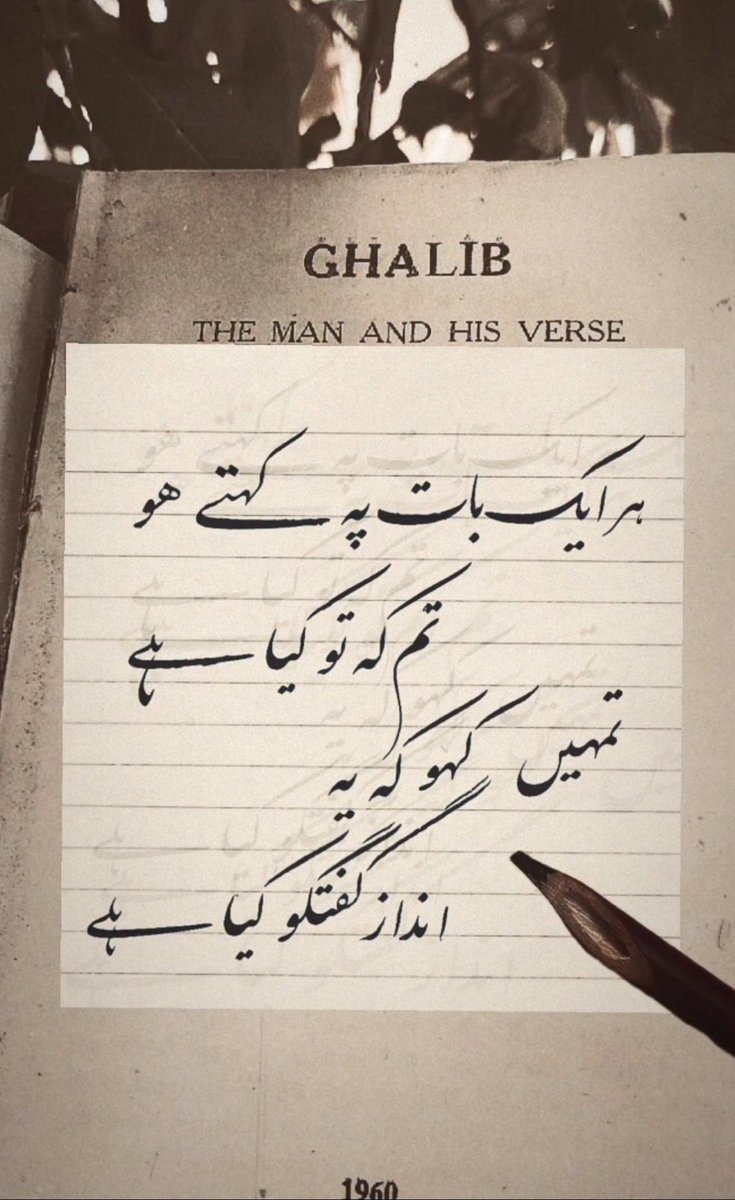 GHALIB
THE MAN AND HIS VERSE
ہر ایک بات پہ کہتے ہو
تم کہ تو کیا ہے
تمہیں کہو کہ یہ
انداز گفتگو کیا ہے
1960